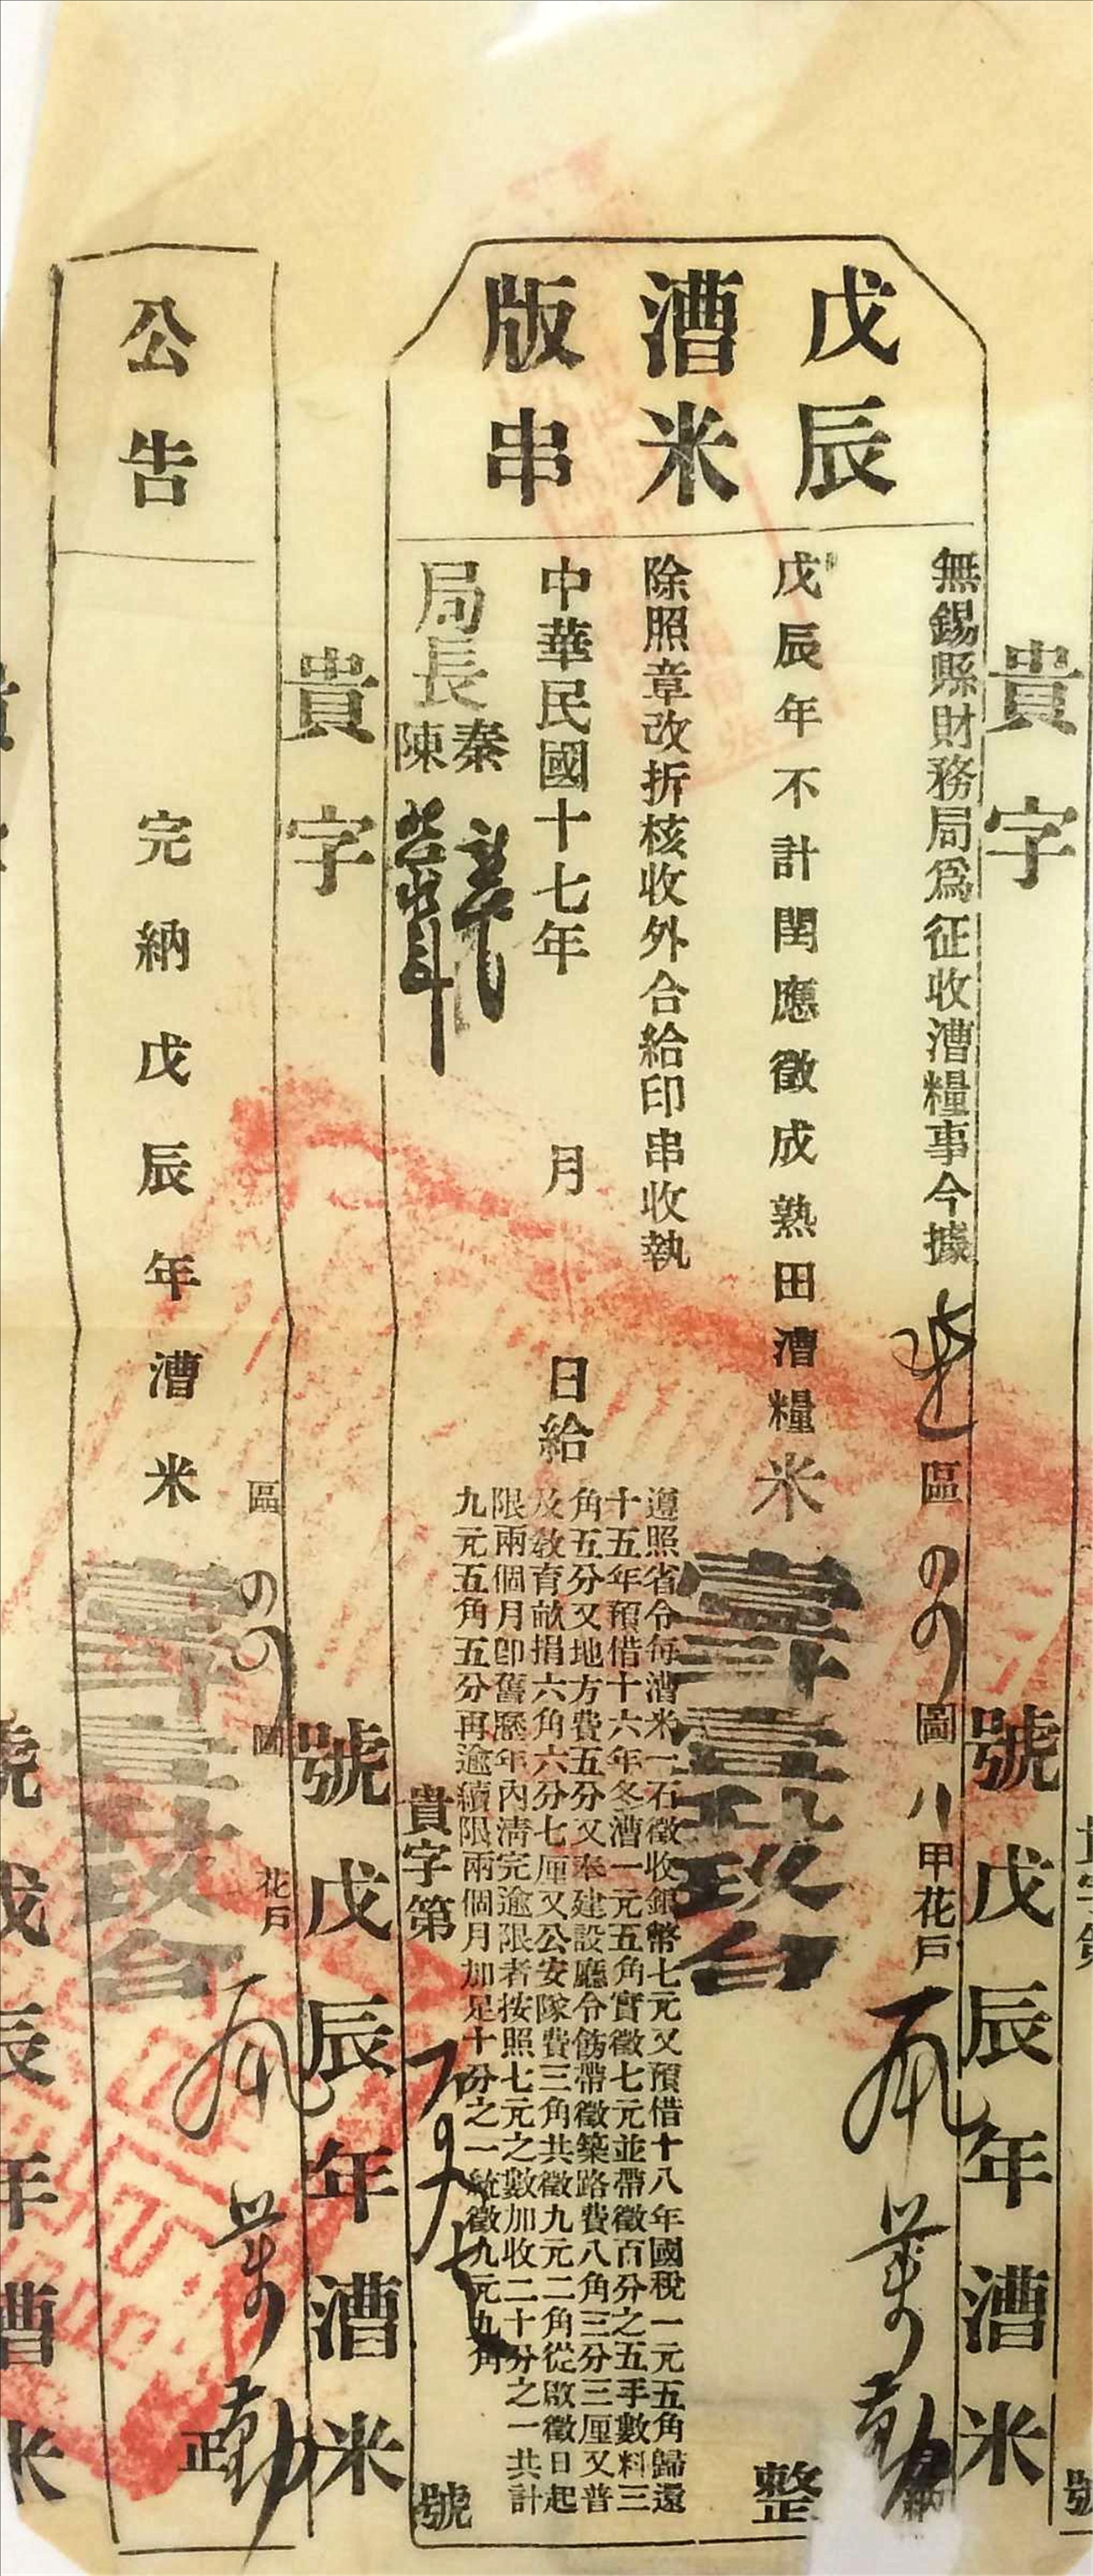 戊辰
漕米
版串
無錫縣財務局爲征收漕糧事今據
區
圖
甲花戶
戊辰年不計閏應徵成熟田漕糧米
整
除照章改折核收外合給印串收執
遵照省令每漕米一石徵收銀幣七元又預借十八年國稅一元五角歸還
十五年預借十六年冬漕一元五角實徵七元並帶徵百分之五手數料三
角五分又地方費五分又奉建設廳令飭帶徵築路費八角三分三厘又普
及教育畝捐六角六分七厘又公安隊費三角共徵九元二角從啟徵日起
限兩個月卽舊歷年內清完逾限者按照七元之數加收二十分之一共計
九元五角五分再逾續限兩個月加足十分之一統徵九元九角
中華民國十七年 月 日給
局長
秦
陳
貴字第
號
貴字 號戊辰年漕米
貴字 號戊辰年漕米
公告
區
圖
花戶
完納戊辰年漕米
正
號戊辰年漕米